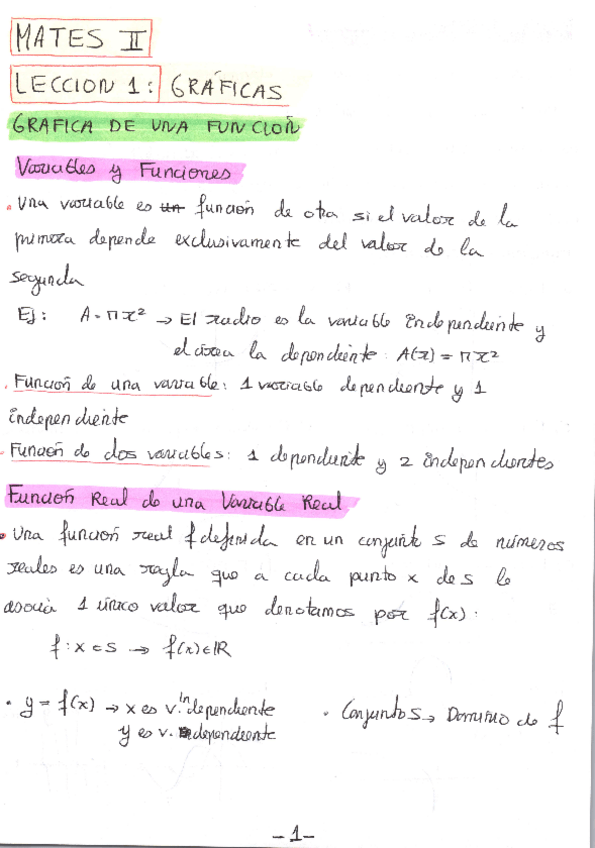 MATES II
LECCION 1: GRÁFICAS
GRAFICA DE UNA FUNCIOÑ
Variables y Funciones
. Una variable es un función de otra si el valor de la
primera depende exclusivamente del valor de la
segunda
Ej: A = πr² → El radio es la variable independiente y
el área la dependiente: A(r) = πr²
. Función de una variable: 1 variable dependiente y 1
independiente
. Función de dos variables: 1 dependiente y 2 independientes
Función Real de una Variable Real
• Una función real f definida en un conjunto S de números
reales es una regla que a cada punto x de S le
asocia 1 único valor que denotamos por f(x):
f: x ∈ S → f(x) ∈ ℝ
• y = f(x) → x es v. independiente
y es v. dependiente
• Conjunto S → Dominio de f
-1-